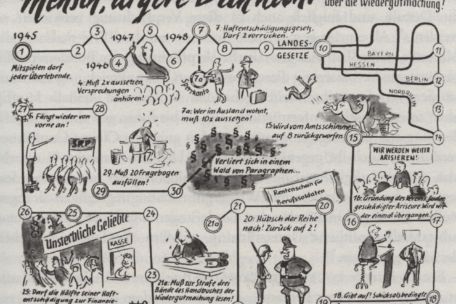 Mensch, ärgere Dich nicht
über die Wiedergutmachung!
1945
1
2
3
1946
4
1947
5
6
1948
7
8
9
LANDES-
GESETZE
10
11
12
13
14
BAYERN
HESSEN
BERLIN
NORDRHEIN
7: Haftentschädigungsgesetz.
Darf 2 vorrücken.
Mitspielen darf
jeder Überlebende.
4: Muß 2x aussetzen,
Versprechungen
anhören!
7a
Sperrkonto
7a: Wer im Ausland wohnt,
muß 10x aussetzen!
13: Wird vom Amtsschimmel
auf 8 zurückgeworfen
27
Fängt wieder von
vorne an!
28
SRP
29: Muß 20 Fragebogen
ausfüllen!
29
30
Verliert sich in einem
Wald von Paragraphen...
Rentenschein für
Berufssoldaten
15
WIR WERDEN WEITER
ARISIEREN!
16
16: Gründung des Vereins
geschädigter Ariseure. Wird wie-
der einmal übergangen!
26
25
24
Unsterbliche Geliebte
KASSE
25: Darf die Hälfte seiner Haft-
entschädigung zur Finanzie-
23
21a
21
20
19
18
21a: Muß zur Strafe drei
Bände des Handbuches der
Wiedergutmachung lesen!
20: Hübsch der Reihe
nach! Zurück auf 2!
18: Gibt auf! Schicksalsbedingte